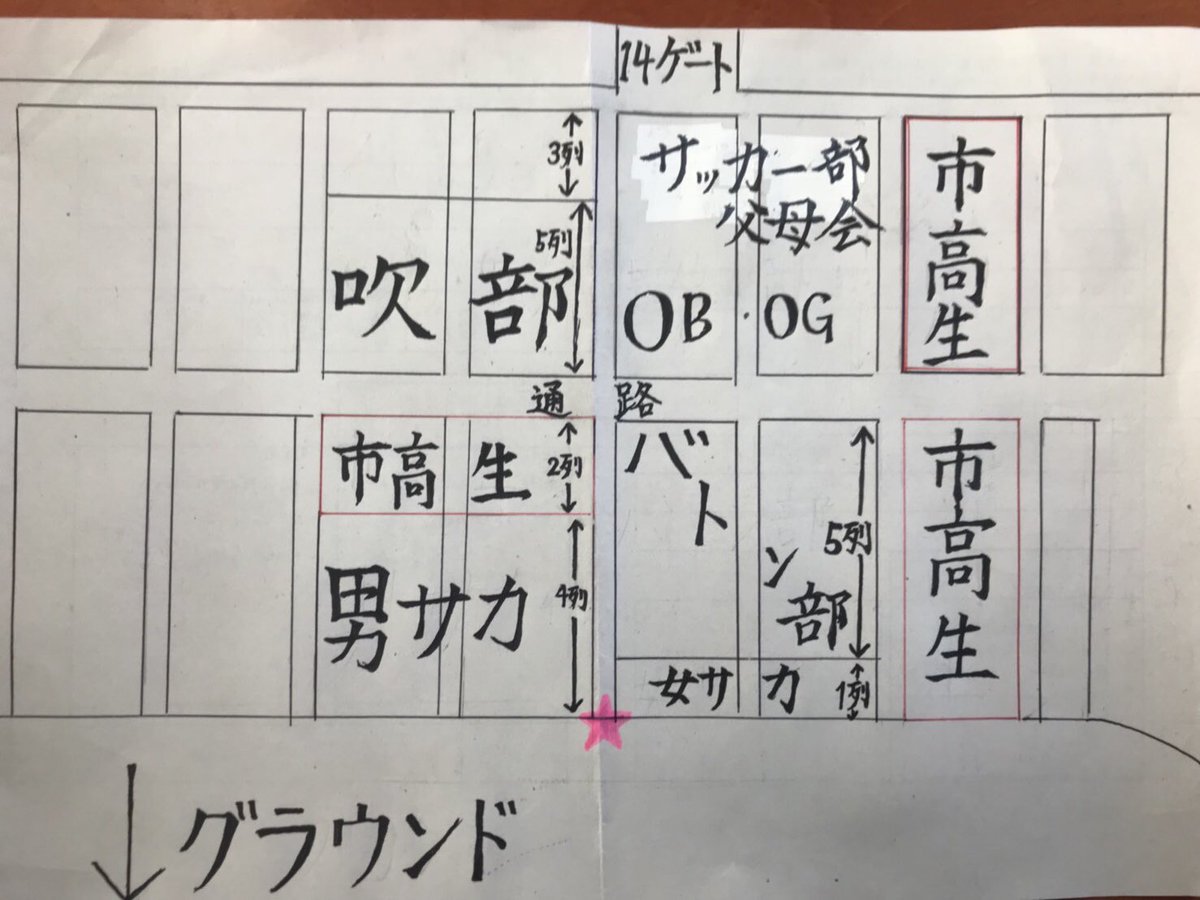 14ゲート
3列
サッカー部
父母会
市高生
5列
吹部
OB・OG
通路
市高生
2列
バトン部
5列
市高生
男サカ
4列
女サカ
1列
グラウンド